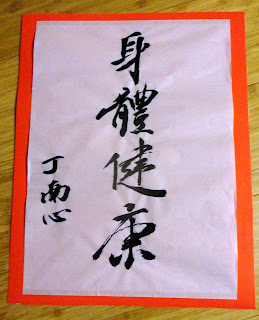 身體健康
丁南心